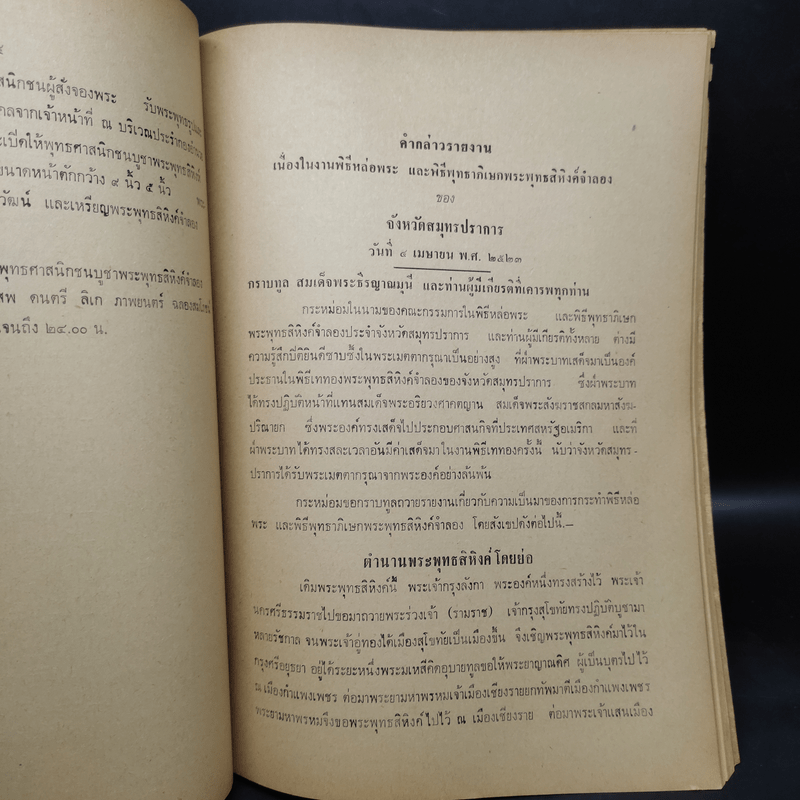 สนิกชนผู้สั่งจองพระ รับพระพุทธรูปและ
กลจากเจ้าหน้าที่ ณ บริเวณประรำกองอำนวย
ะเปิดให้พุทธศาสนิกชนบูชาพระพุทธสิหิงค์
ขนาดหน้าตักกว้าง ๙ นิ้ว ๕ นิ้ว
วัฒน์ และเหรียญพระพุทธสิหิงค์จำลอง
พุทธศาสนิกชนบูชาพระพุทธสิหิงค์จำลอง
สพ ดนตรี ลิเก ภาพยนตร์ ฉลองสมโภช
เจนถึง ๒๔.๐๐ น.
คำกล่าวรายงาน
เนื่องในงานพิธีหล่อพระ และพิธีพุทธาภิเษกพระพุทธสิหิงค์จำลอง
ของ
จังหวัดสมุทรปราการ
วันที่ ๘ เมษายน พ.ศ. ๒๕๒๓
กราบทูล สมเด็จพระธีรญาณมุนี และท่านผู้มีเกียรติที่เคารพทุกท่าน
กระหม่อมในนามของคณะกรรมการในพิธีหล่อพระ และพิธีพุทธาภิเษก
พระพุทธสิหิงค์จำลองประจำจังหวัดสมุทรปราการ และท่านผู้มีเกียรติทั้งหลาย ต่างมี
ความรู้สึกปิติยินดีซาบซึ้งในพระเมตตากรุณาเป็นอย่างสูง ที่ฝ่าพระบาทเสด็จมาเป็นองค์
ประธานในพิธีเททองพระพุทธสิหิงค์จำลองของจังหวัดสมุทรปราการ ซึ่งฝ่าพระบาท
ได้ทรงปฏิบัติหน้าที่แทนสมเด็จพระอริยวงศาคตญาน สมเด็จพระสังฆราชสกลมหาสังฆ-
ปริณายก ซึ่งพระองค์ทรงเสด็จไปประกอบศาสนกิจที่ประเทศสหรัฐอเมริกา และที่
ฝ่าพระบาทได้ทรงสละเวลาอันมีค่าเสด็จมาในงานพิธีเททองครั้งนี้ นับว่าจังหวัดสมุทร-
ปราการได้รับพระเมตตากรุณาจากพระองค์อย่างล้นพ้น
กระหม่อมขอกราบทูลถวายรายงานเกี่ยวกับความเป็นมาของการกระทำพิธีหล่อ
พระ และพิธีพุทธาภิเษกพระพุทธสิหิงค์จำลอง โดยสังเขปดังต่อไปนี้.–
ตำนานพระพุทธสิหิงค์ โดยย่อ
เดิมพระพุทธสิหิงค์นี้ พระเจ้ากรุงลังกา พระองค์หนึ่งทรงสร้างไว้ พระเจ้า
นครศรีธรรมราชไปขอมาถวายพระร่วงเจ้า (รามราช) เจ้ากรุงสุโขทัยทรงปฏิบัติบูชามา
หลายรัชกาล จนพระเจ้าอู่ทองได้เมืองสุโขทัยเป็นเมืองขึ้น จึงเชิญพระพุทธสิหิงค์มาไว้ใน
กรุงศรีอยุธยา อยู่ได้ระยะหนึ่งพระมเหสีคิดอุบายทูลขอให้พระยาญาณดิศ ผู้เป็นบุตรไปไว้
ณ เมืองกำแพงเพชร ต่อมาพระยามหาพรหมเจ้าเมืองเชียงรายยกทัพมาตีเมืองกำแพงเพชร
พระยามหาพรหมจึงขอพระพุทธสิหิงค์ไปไว้ ณ เมืองเชียงราย ต่อมาพระเจ้าแสนเมือง